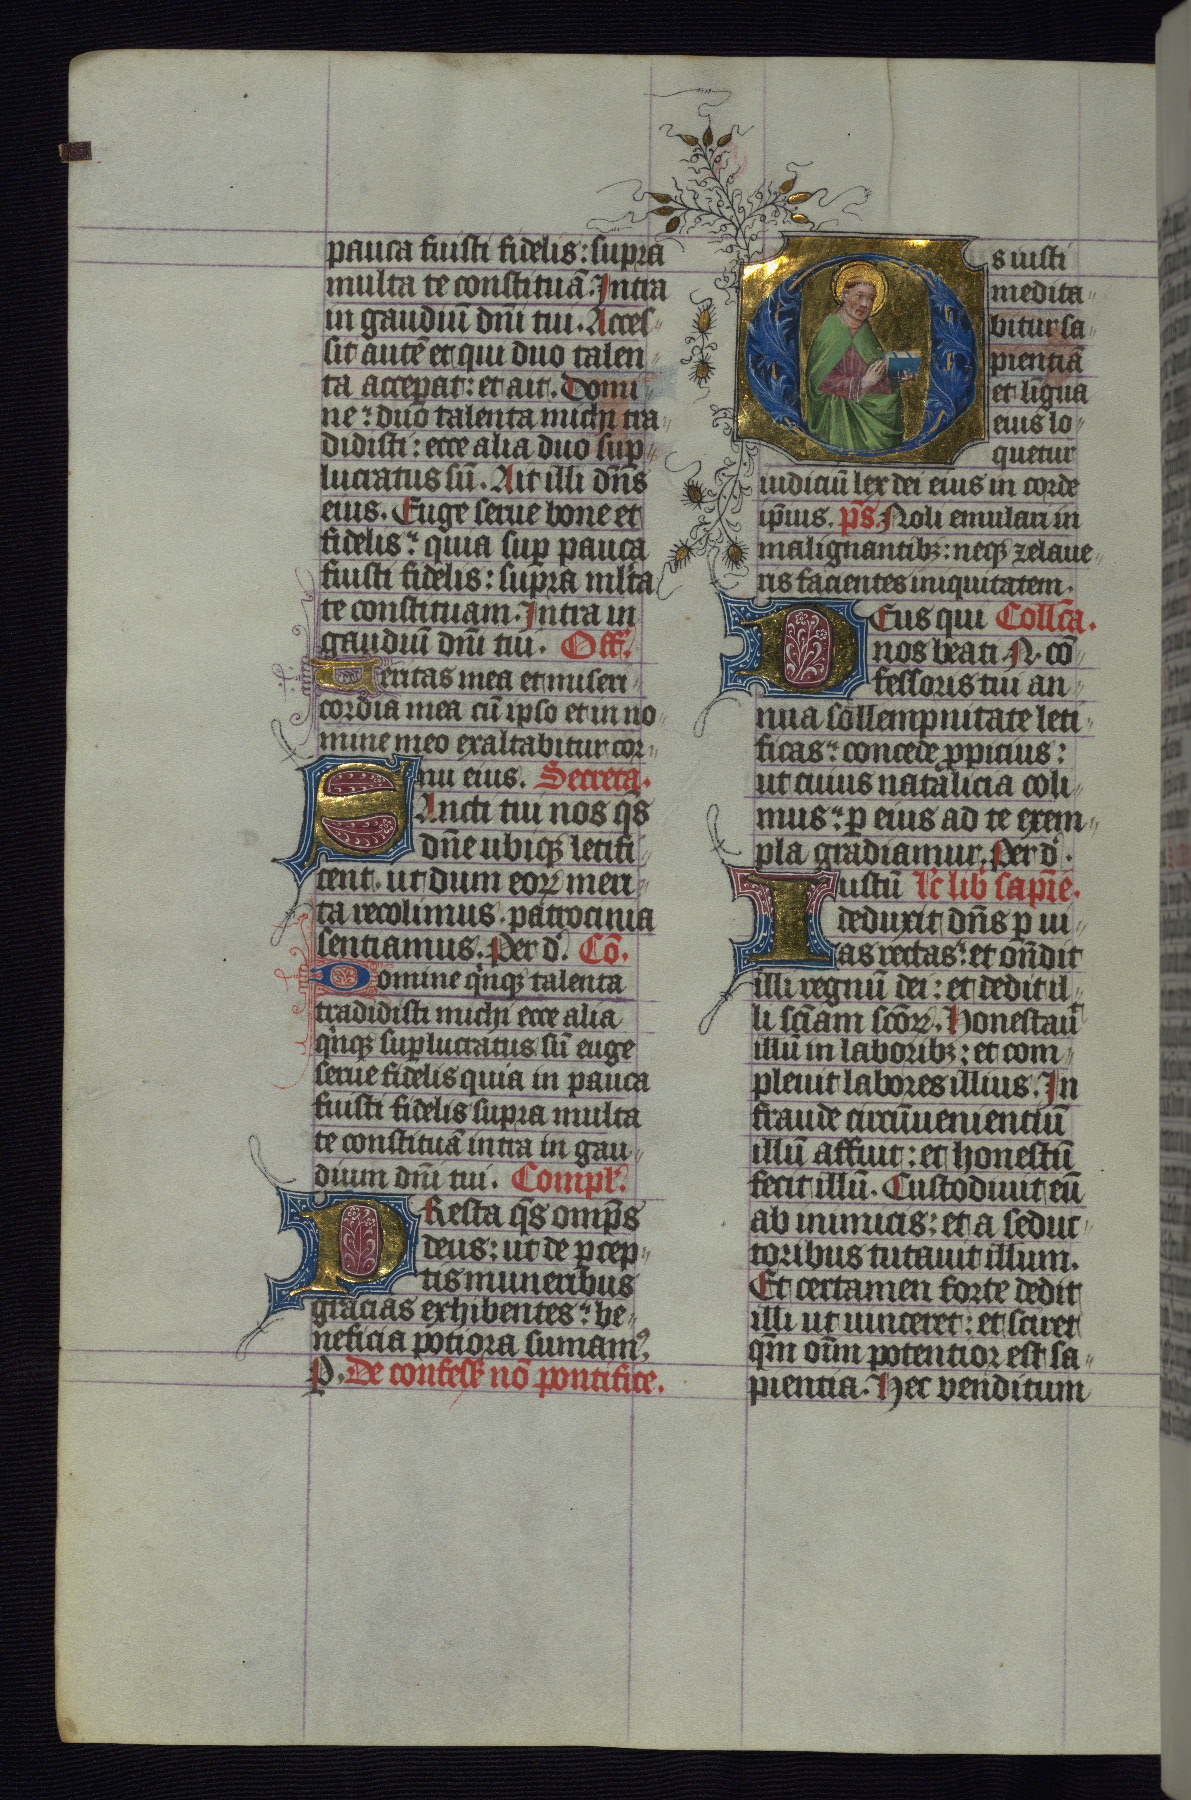 pauca fuisti fidelis: supra
multa te constituā. Intra
in gaudiū dn̄i tui. Acces-
sit autē et qui duo talen-
ta acceperat: et ait. Domi-
ne: duo talenta michi tra-
didisti: ecce alia duo sup-
lucratus sū. Ait illi dn̄s
eius. Euge serue bone et
fidelis: quia sup pauca
fuisti fidelis: supra mlta
te constituam. Intra in
gaudiū dn̄i tui. Off.
Veritas mea et miseri-
cordia mea cū ipso et in no-
mine meo exaltabitur cor-
nu eius. Secreta.
SAncti tui nos q̄s
dn̄e ubiqꝫ letifi-
cent. ut dum eoꝝ meri-
ta recolimus. patrocinia
sentiamus. Per d. Cō.
Domine qͥnqꝫ talenta
tradidisti michi ecce alia
qͥnqꝫ suplucratus sū euge
serue fidelis quia in pauca
fuisti fidelis supra multa
te constituā intra in gau-
dium dn̄i tui. Compl.
PResta q̄s omp̄s
deus: ut de ꝑcep-
tis muneribus
gracias exhibentes: be-
neficia potiora sumamꝰ.
P. De confess nō pontifice.
Os iusti
medita-
bitur sa-
pientiā
et ligua
eius lo-
quetur
iudiciū lex dei eius in corde
ip̄ius. ps̄. Noli emulari in
malignantibꝫ: neqꝫ zelaue-
ris facientes iniquitatem.
DEus qui Coll̄ca.
nos beati .N. cō-
fessoris tui an-
nua sollempnitate leti-
ficas: concede ꝓpitius:
ut cuius natalicia coli-
mus: ꝑ eius ad te exem-
pla gradiamur. Per d.
Iustū lc̄ lib sapīe.
deduxit dn̄s ꝑ ui-
as rectas: et on̄dit
illi regnū dei: et dedit il-
li sciam scōꝝ. Honestauͭ
illū in laboribꝫ: et com-
pleuit labores illius. In
fraude circūuenientiū
illū affuit: et honestū
fecit illū. Custodiuit eū
ab inimicis: et a seduc-
toribus tutauit illum.
Et certamen forte dedit
illi ut uinceret: et sciret
qm̄ om̄ potentior est sa-
pientia. Hec venditum